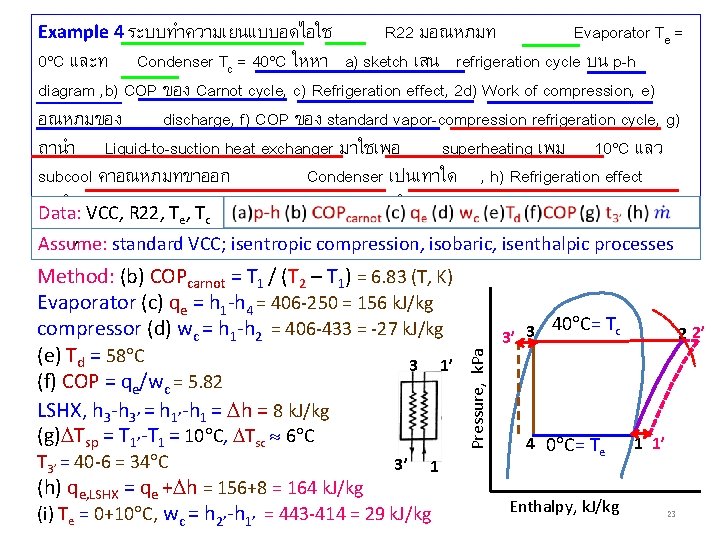 Example 4 ระบบทำความเยนแบบอดไอใช R22 มอณหภมท Evaporator Te =
0ºC และท Condenser Tc = 40ºC ใหหา a) sketch เสน refrigeration cycle บน p-h
diagram , b) COP ของ Carnot cycle, c) Refrigeration effect, 2d) Work of compression, e)
อณหภมของ discharge, f) COP ของ standard vapor-compression refrigeration cycle, g)
ถานำ Liquid-to-suction heat exchanger มาใชเพอ superheating เพม 10ºC แลว
subcool คาอณหภมทขาออก Condenser เปนเทาใด , h) Refrigeration effect
Data: VCC, R22, Te, Tc (a)p-h (b) COPcarnot (c) qe (d) wc (e)Td (f)COP (g) t3′ (h) ṁ
Assume: standard VCC; isentropic compression, isobaric, isenthalpic processes
Method: (b) COPcarnot = T1 / (T2 – T1) = 6.83 (T, K)
Evaporator (c) qe = h1-h4 = 406-250 = 156 kJ/kg
compressor (d) wc = h1-h2 = 406-433 = -27 kJ/kg
(e) Td = 58°C
(f) COP = qe/wc = 5.82
LSHX, h3-h3′ = h1′-h1 = Δh = 8 kJ/kg
(g)ΔTsp = T1′-T1 = 10°C, ΔTsc ≈ 6°C
T3′ = 40-6 = 34°C
(h) qe,LSHX = qe +Δh = 156+8 = 164 kJ/kg
(i) Te = 0+10°C, wc = h2′-h1′ = 443-414 = 29 kJ/kg
3 1’
3’ 1
Pressure, kPa
3’ 3 40°C= Tc 2 2’
4 0°C= Te 1 1’
Enthalpy, kJ/kg
23